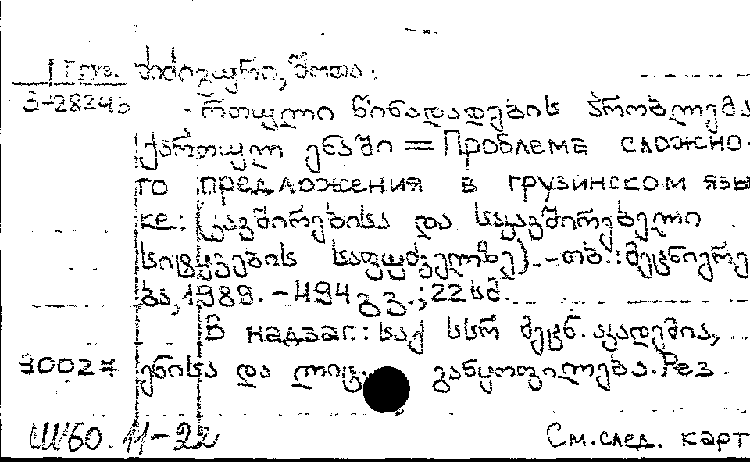 Груз. ძიძიგური, შოთა.
3-28243 რთული წინადადების პრობლემა
ქართულ ენაში = Проблема сложно-
го предложения в грузинском язы
ке: (კავშირებისა და საკავშირებელი
სიტყვების საფუძველზე). - თბ.: მეცნიერე
ბა, 1989. - 494 გვ.; 22 სმ.
В надзаг.: საქ სსრ მეცნ. აკადემია,
30027 ენისა და ლიტ. განყოფილება. Рез
Ш60.11-22 См. след. карт